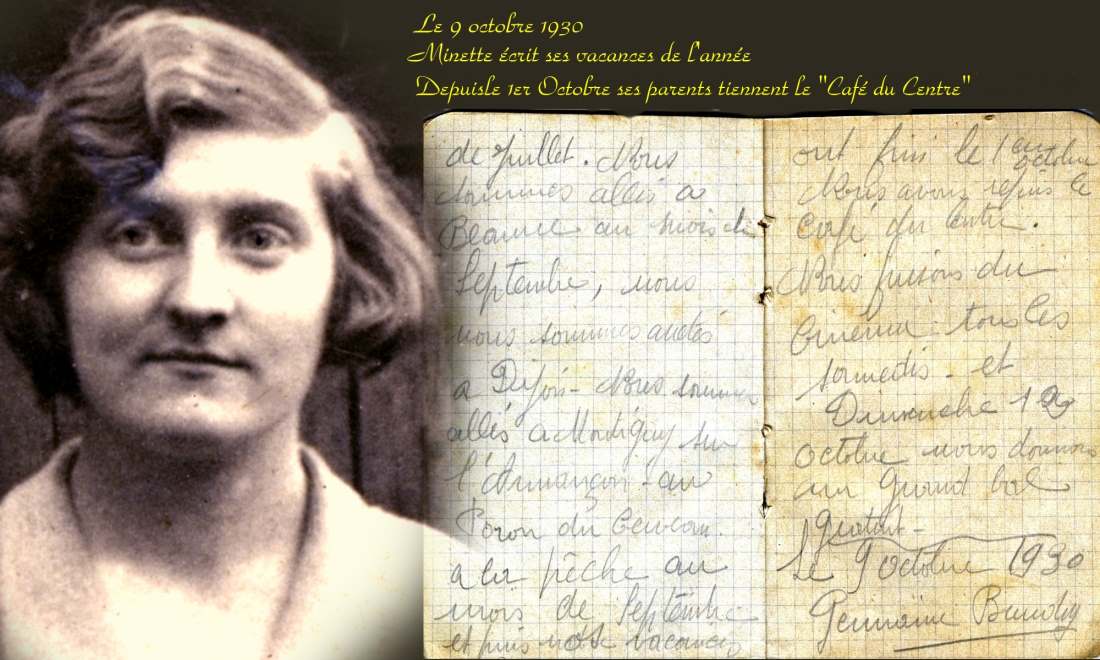 Le 9 octobre 1930
Minette écrit ses vacances de l'année
Depuisle 1er Octobre ses parents tiennent le "Café du Centre"
de Juillet. Nous
sommes allés a
Beaune au mois de
Septembre, nous
nous sommes
a Dijon - Nous sommes
allés a Montigny sur
l'Armançon - au
du Cerveau.
a la pêche au
mois de Septembre
et puis notre vacances
ont finis le 1 er octobre
Nous avons repris le
Café du Centre.
Nous faisons du
Cinéma - tous les
samedis - et
Dimanche 12
octobre nous donnons
un Grand bal
gratuit -
Le 9 octobre 1930
Germaine